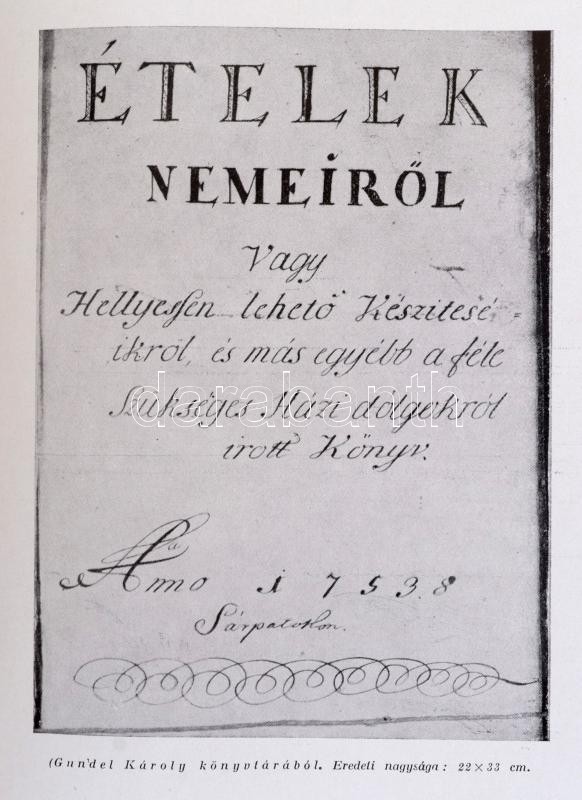 ÉTELEK
NEMEIRŐL
Vagy
Hellyessen lehető Készitesé=
ikről, és más egyébb a féle
darabanth
Szükséges Házi dólgokról
irott Könyv.
Anno 1753.8
Sárpatokon.
(Gundel Károly könyvtárából. Eredeti nagysága: 22×33 cm.